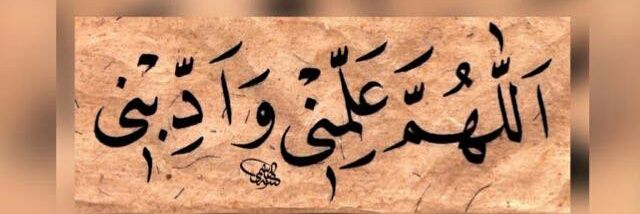 اَللّٰهُمَّ عَلِّمْنِي وَاَدِّبْنِي